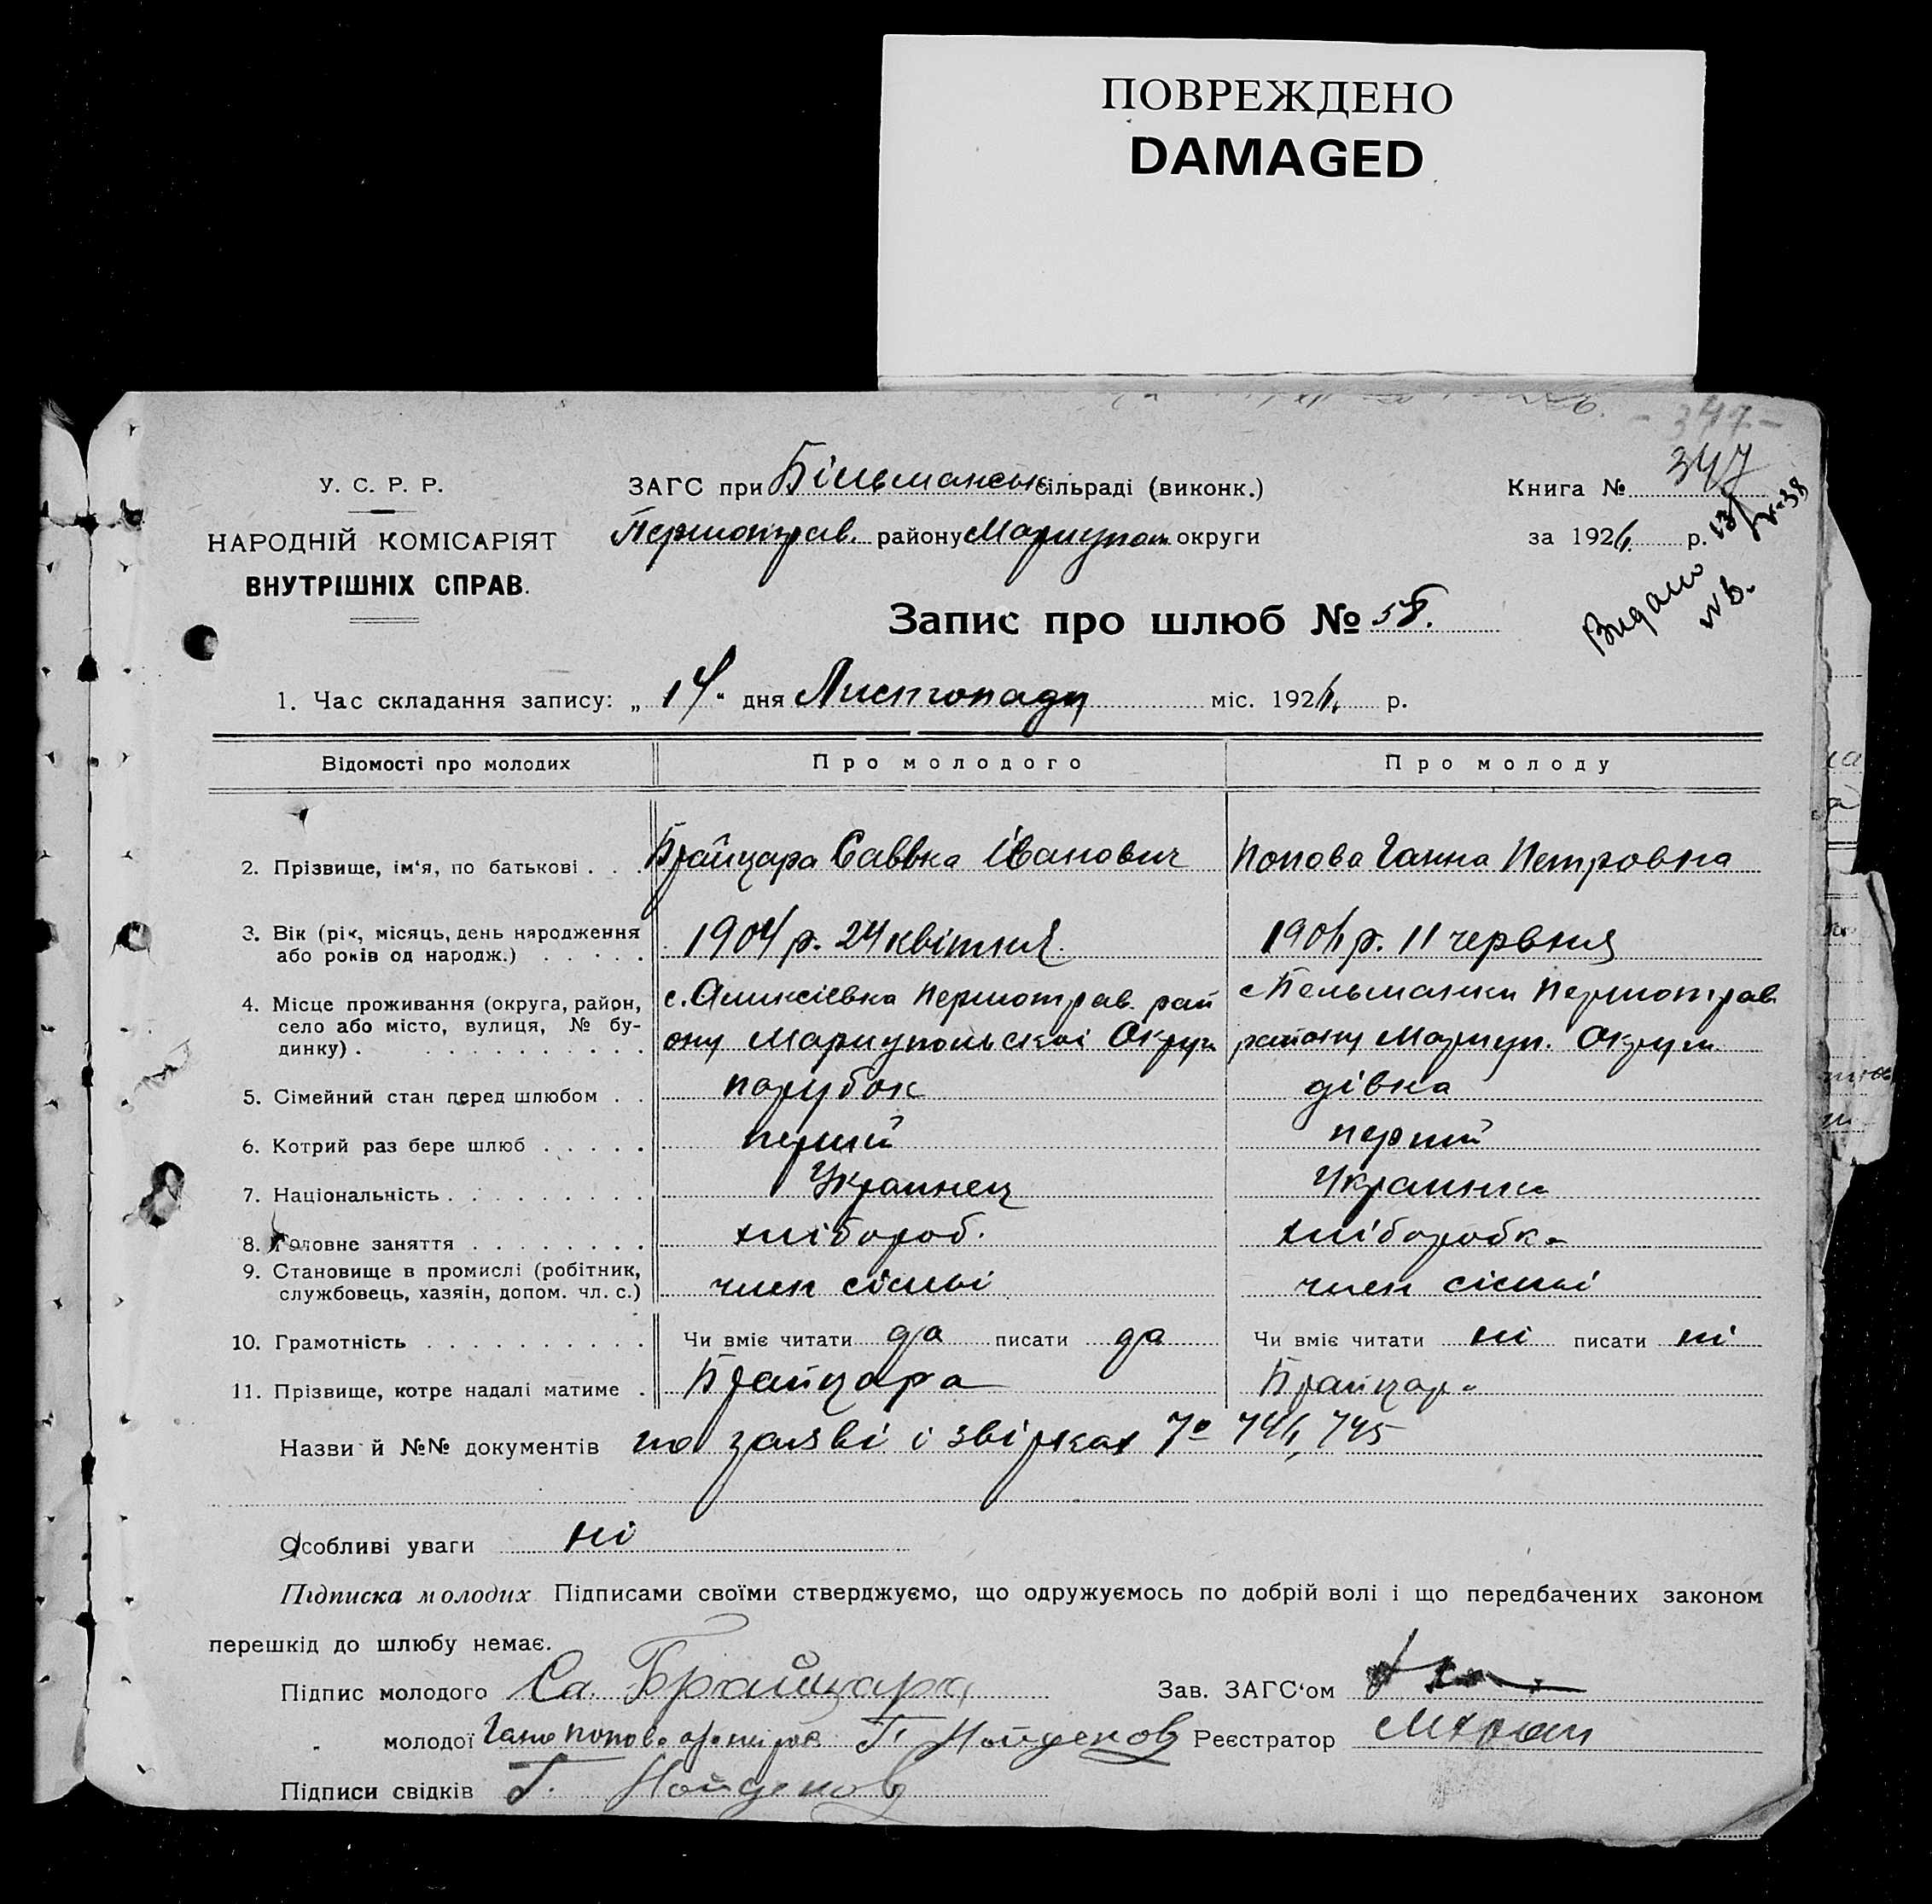 ПОВРЕЖДЕНО
DAMAGED
- 347 -
У. С. Р. Р.
НАРОДНІЙ КОМІСАРІЯТ
ВНУТРІШНІХ СПРАВ.
ЗАГС при Більманськ сільраді (виконк.)
Першотрав. району Маріупол округи
Книга № 347
за 1924 р.
Видано
Запис про шлюб №
1. Час складання запису: „ 14 " дня Листопада міс. 1924 р.
Відомості про молодих Про молодого Про молоду
2. Прізвище, ім'я, по батькові . . . Брайцара Саввка Іванович Попова Ганна Петровна
3. Вік (рік, місяць, день народження або років од народж.) . . . . . 1904 р. 24 квітня. 1904 р. 11 червня
4. Місце проживання (округа, район, село або місто, вулиця, № будинку) . . . . . . . . . . с. Аликсіевка Першотрав. району Маріупольскоі Округи с Бельманки Першотрав. району Маріуп. Округи
5. Сімейний стан перед шлюбом . . парубок дівка
6. Котрий раз бере шлюб . . . . . перший перший
7. Національність . . . . . . . . . Украинец Украинка
8. Головне заняття . . . . . . . . хлібороб. хліборобка
9. Становище в промислі (робітник, службовець, хазяін, допом. чл. с.) член сімьі член сімьі
10. Грамотність . . . . . . . . . . Чи вміє читати да писати да Чи вміє читати ні писати ні
11. Прізвище, котре надалі матиме . Брайцара Брайцара
Назви й №№ документів по заяві і звірках 744, 745
Особливі уваги ні
Підписка молодих Підписами своїми стверджуємо, що одружуємось по добрій волі і що передбачених законом
перешкід до шлюбу немає.
Підпис молодого Са. Брайцара Зав. ЗАГС'ом
молодої Гана Попова Г. Найденов Реєстратор
Підписи свідків Г. Найденов